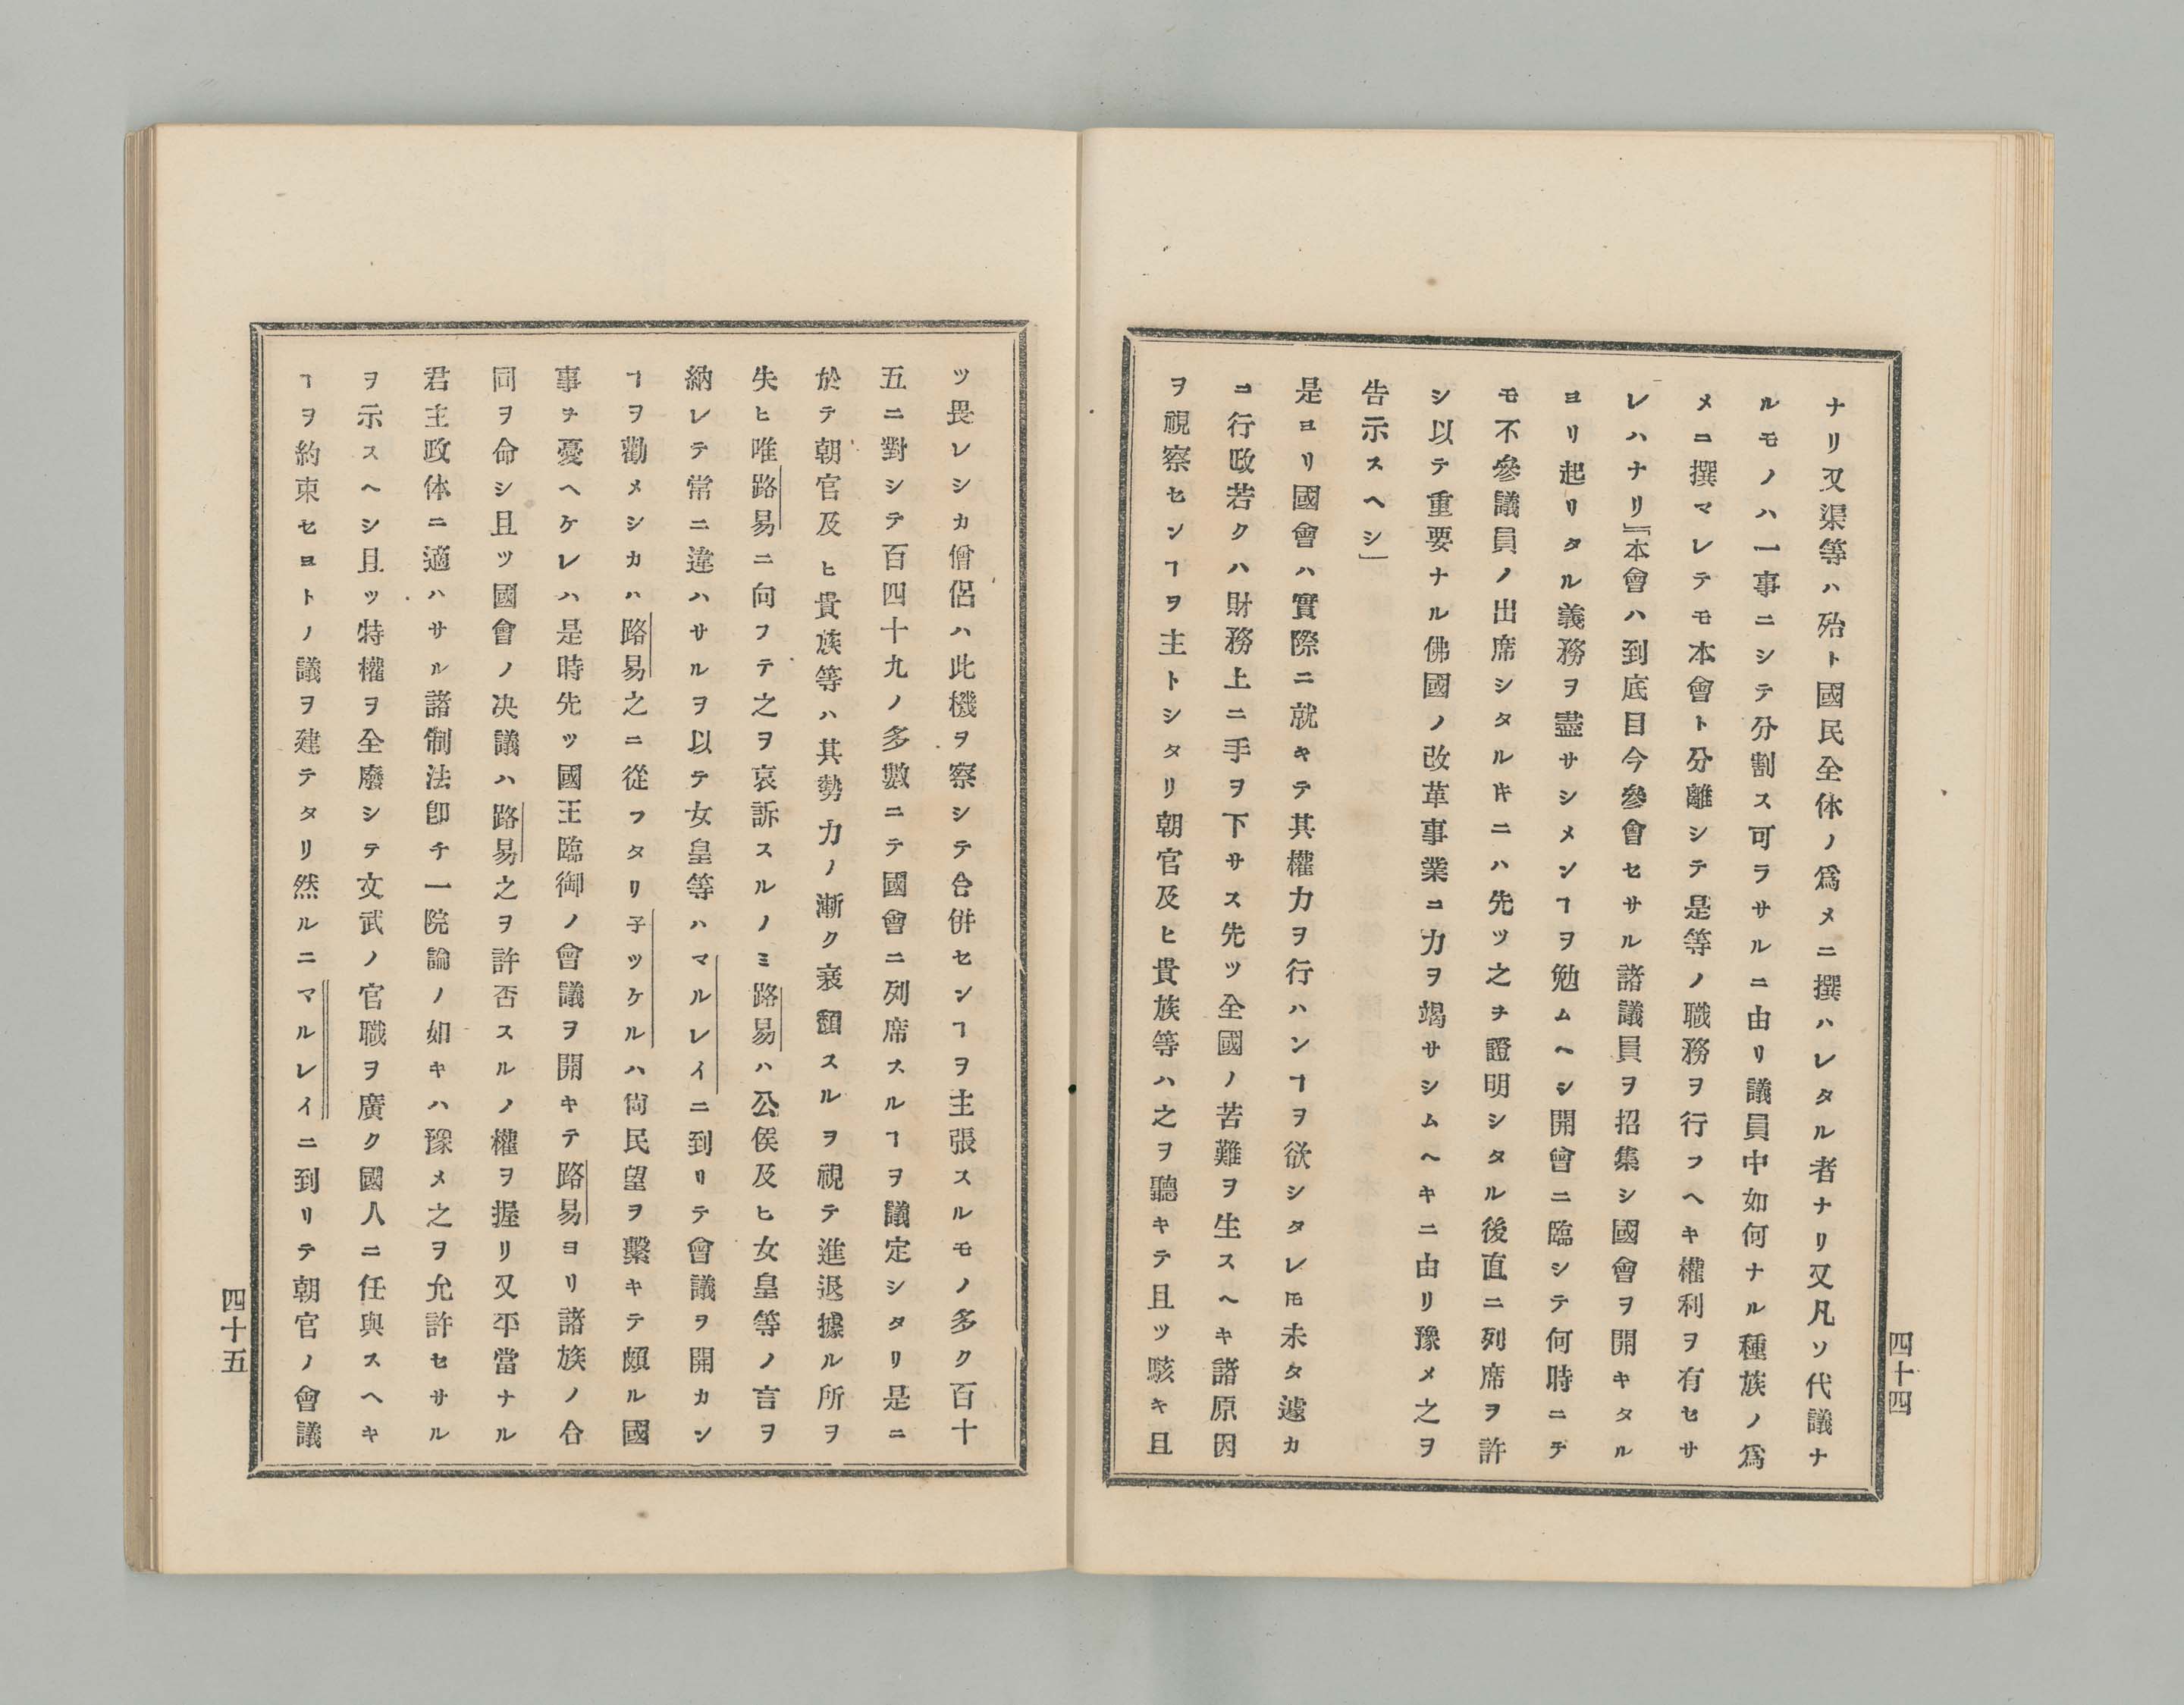 ナリ又渠等ハ殆ト國民全体ノ爲メニ撰ハレタル者ナリ又凡ソ代議ナ
ルモノハ一事ニシテ分割ス可ラサルニ由リ議員中如何ナル種族ノ爲
メニ撰マレテモ本會ト分離シテ是等ノ職務ヲ行フヘキ權利ヲ有セサ
レハナリ『本會ハ到底目今參會セサル諸議員ヲ招集シ國會ヲ開キタル
ヨリ起リタル義務ヲ盡サシメンヿヲ勉ムヘシ開會ニ臨シテ何時ニテ
モ不參議員ノ出席シタルキニハ先ツ之ヲ證明シタル後直ニ列席ヲ許
シ以テ重要ナル佛國ノ改革事業ニ力ヲ竭サシムヘキニ由リ豫メ之ヲ
告示スヘシ」
是ヨリ國會ハ實際ニ就キテ其權力ヲ行ハンヿヲ欲シタレ𪜈未タ遽カ
ニ行政若クハ財務上ニ手ヲ下サス先ツ全國ノ苦難ヲ生スヘキ諸原因
ヲ視察センヿヲ主トシタリ朝官及ヒ貴族等ハ之ヲ聽キテ且ツ駭キ且
四十四
ツ畏レシカ僧侶ハ此機ヲ察シテ合併センヿヲ主張スルモノ多ク百十
五ニ對シテ百四十九ノ多數ニテ國會ニ列席スルヿヲ議定シタリ是ニ
於テ朝官及ヒ貴族等ハ其勢力ノ漸ク衰頽スルヲ視テ進退據ル所ヲ
失ヒ唯路易ニ向フテ之ヲ哀訴スルノミ路易ハ公侯及ヒ女皇等ノ言ヲ
納レテ常ニ違ハサルヲ以テ女皇等ハマルレイニ到リテ會議ヲ開カン
ヿヲ勸メシカハ路易之ニ從フタリ子ツケルハ尙民望ヲ繫キテ頗ル國
事ヲ憂ヘケレハ是時先ツ國王臨御ノ會議ヲ開キテ路易ヨリ諸族ノ合
同ヲ命シ且ツ國會ノ决議ハ路易之ヲ許否スルノ權ヲ握リ又平當ナル
君主政体ニ適ハサル諸制法卽チ一院論ノ如キハ豫メ之ヲ允許セサル
ヲ示スヘシ且ツ特權ヲ全廢シテ文武ノ官職ヲ廣ク國人ニ任與スヘキ
ヿヲ約束セヨトノ議ヲ建テタリ然ルニマルレイニ到リテ朝官ノ會議
四十五